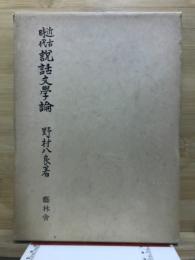 近古時代説話文學論
野村八良著
藝林舎